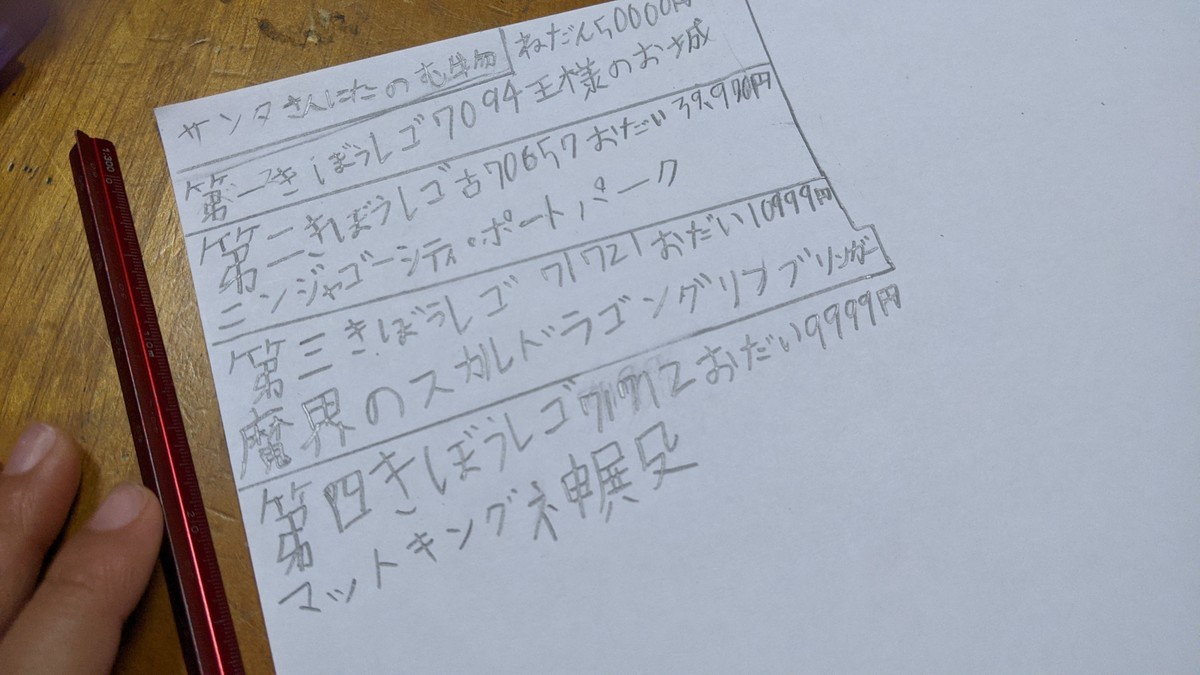 サンタさんにたのむ物 ねだん50000円
第一きぼうレゴ7094王様のお城
第二きぼうレゴ古70657おだい39,970円
ニンジャゴーシティ・ポートパーク
第三きぼうレゴ 71721おだい10999円
魔界のスカルドラゴングリフブリンガー
第四きぼうレゴ71712おだい9999円
マットキングネ申展兄
1:300